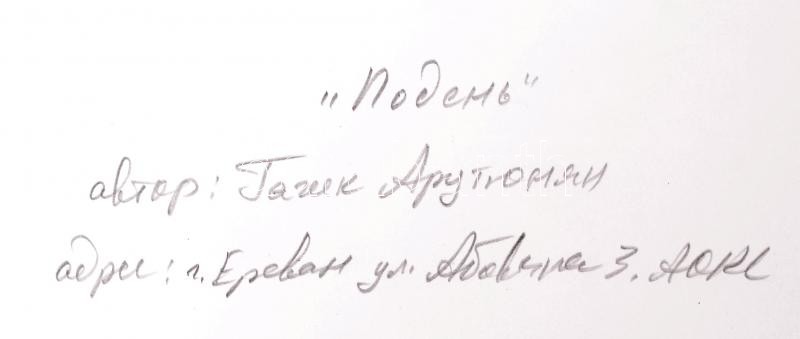 "Подень"
автор: Гагик Арутюнян
адрес: г. Ереван ул. Абовяна 3. АОКС